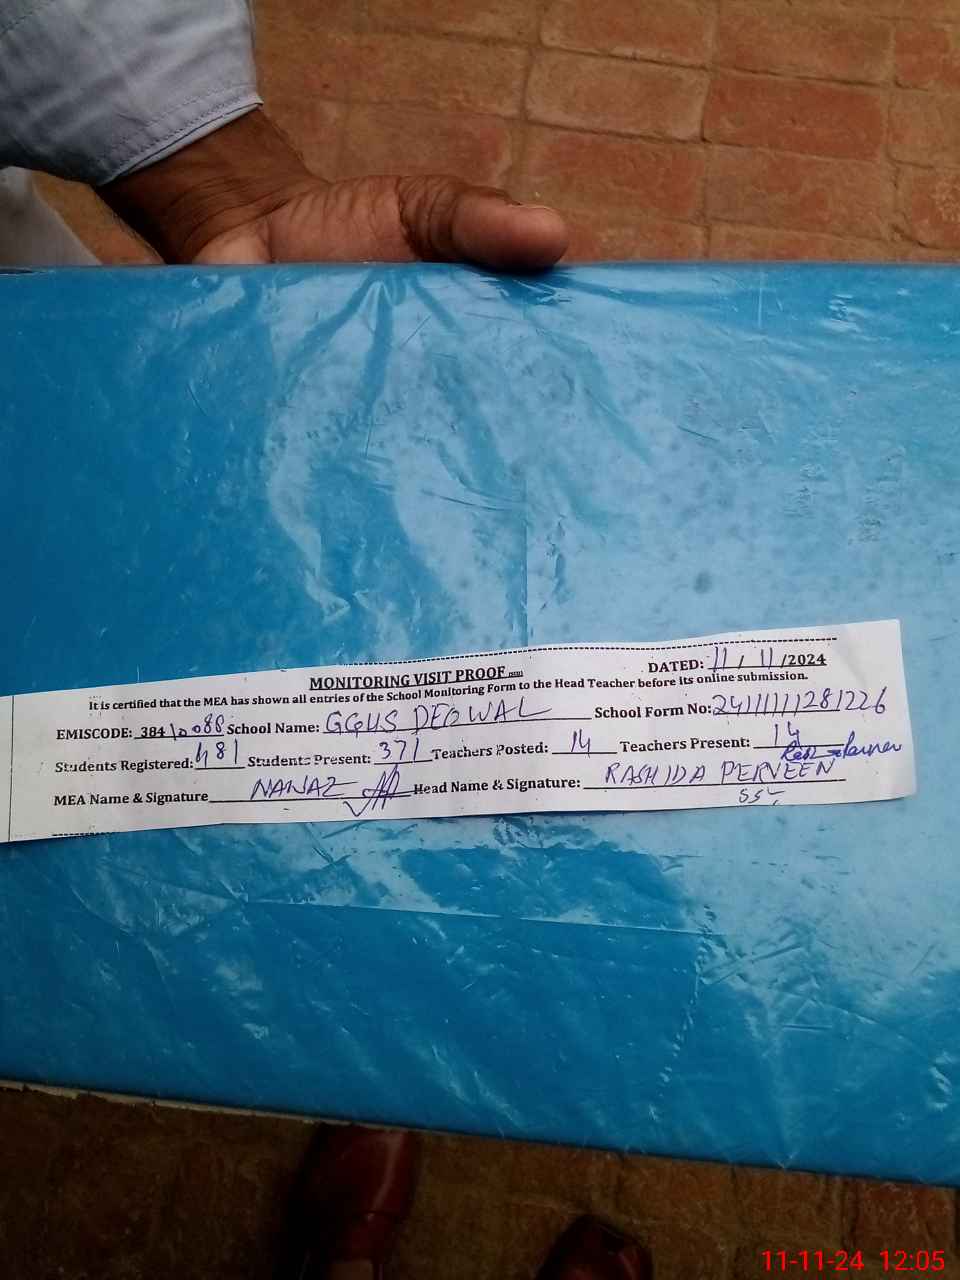 MONITORING VISIT PROOF
DATED: 11 / 11 /2024
It is certified that the MEA has shown all entries of the School Monitoring Form to the Head Teacher before its online submission.
EMISCODE: 38410088 School Name: GGUS DEOWAL School Form No: 24111111281226
Students Registered: 481 Students Present: 371 Teachers Posted: 14 Teachers Present: 14
MEA Name & Signature NAWAZ Head Name & Signature: RASHIDA PERVEEN
SST
11-11-24 12:05